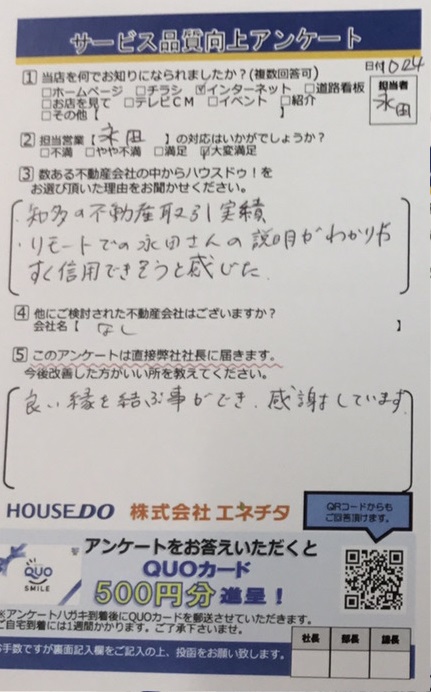 サービス品質向上アンケート
日付 1024
担当者
永田
1 当店を何でお知りになられましたか?(複数回答可)
□ホームページ □チラシ ☑インターネット □道路看板
□お店を見て □テレビCM □イベント □紹介
□その他【 】
2 担当営業【永田】の対応はいかがでしょうか?
□不満 □やや不満 □満足 ☑大変満足
3 数ある不動産会社の中からハウスドゥ!を
お選び頂いた理由をお聞かせください。
・知多の不動産取引実績
・リモートでの永田さんの説明がわかりや
すく信用できそうと感じた
4 他にご検討された不動産会社はございますか?
会社名【 なし 】
5 このアンケートは直接弊社社長に届きます。
今後改善した方がいい所を教えてください。
良い縁を結ぶ事ができ、感謝しています
HOUSE DO 株式会社 エネチタ
QRコードからも
ご回答頂けます。
アンケートをお答えいただくと
QUOカード
500円分 進呈!
QUO
SMILE
※アンケートハガキ到着後にQUOカードを郵送させていただきます。
ご自宅到着には1週間かかります。ご了承下さいませ。
お手数ですが裏面記入欄をご記入の上、投函をお願い致します。
社長 部長 課長